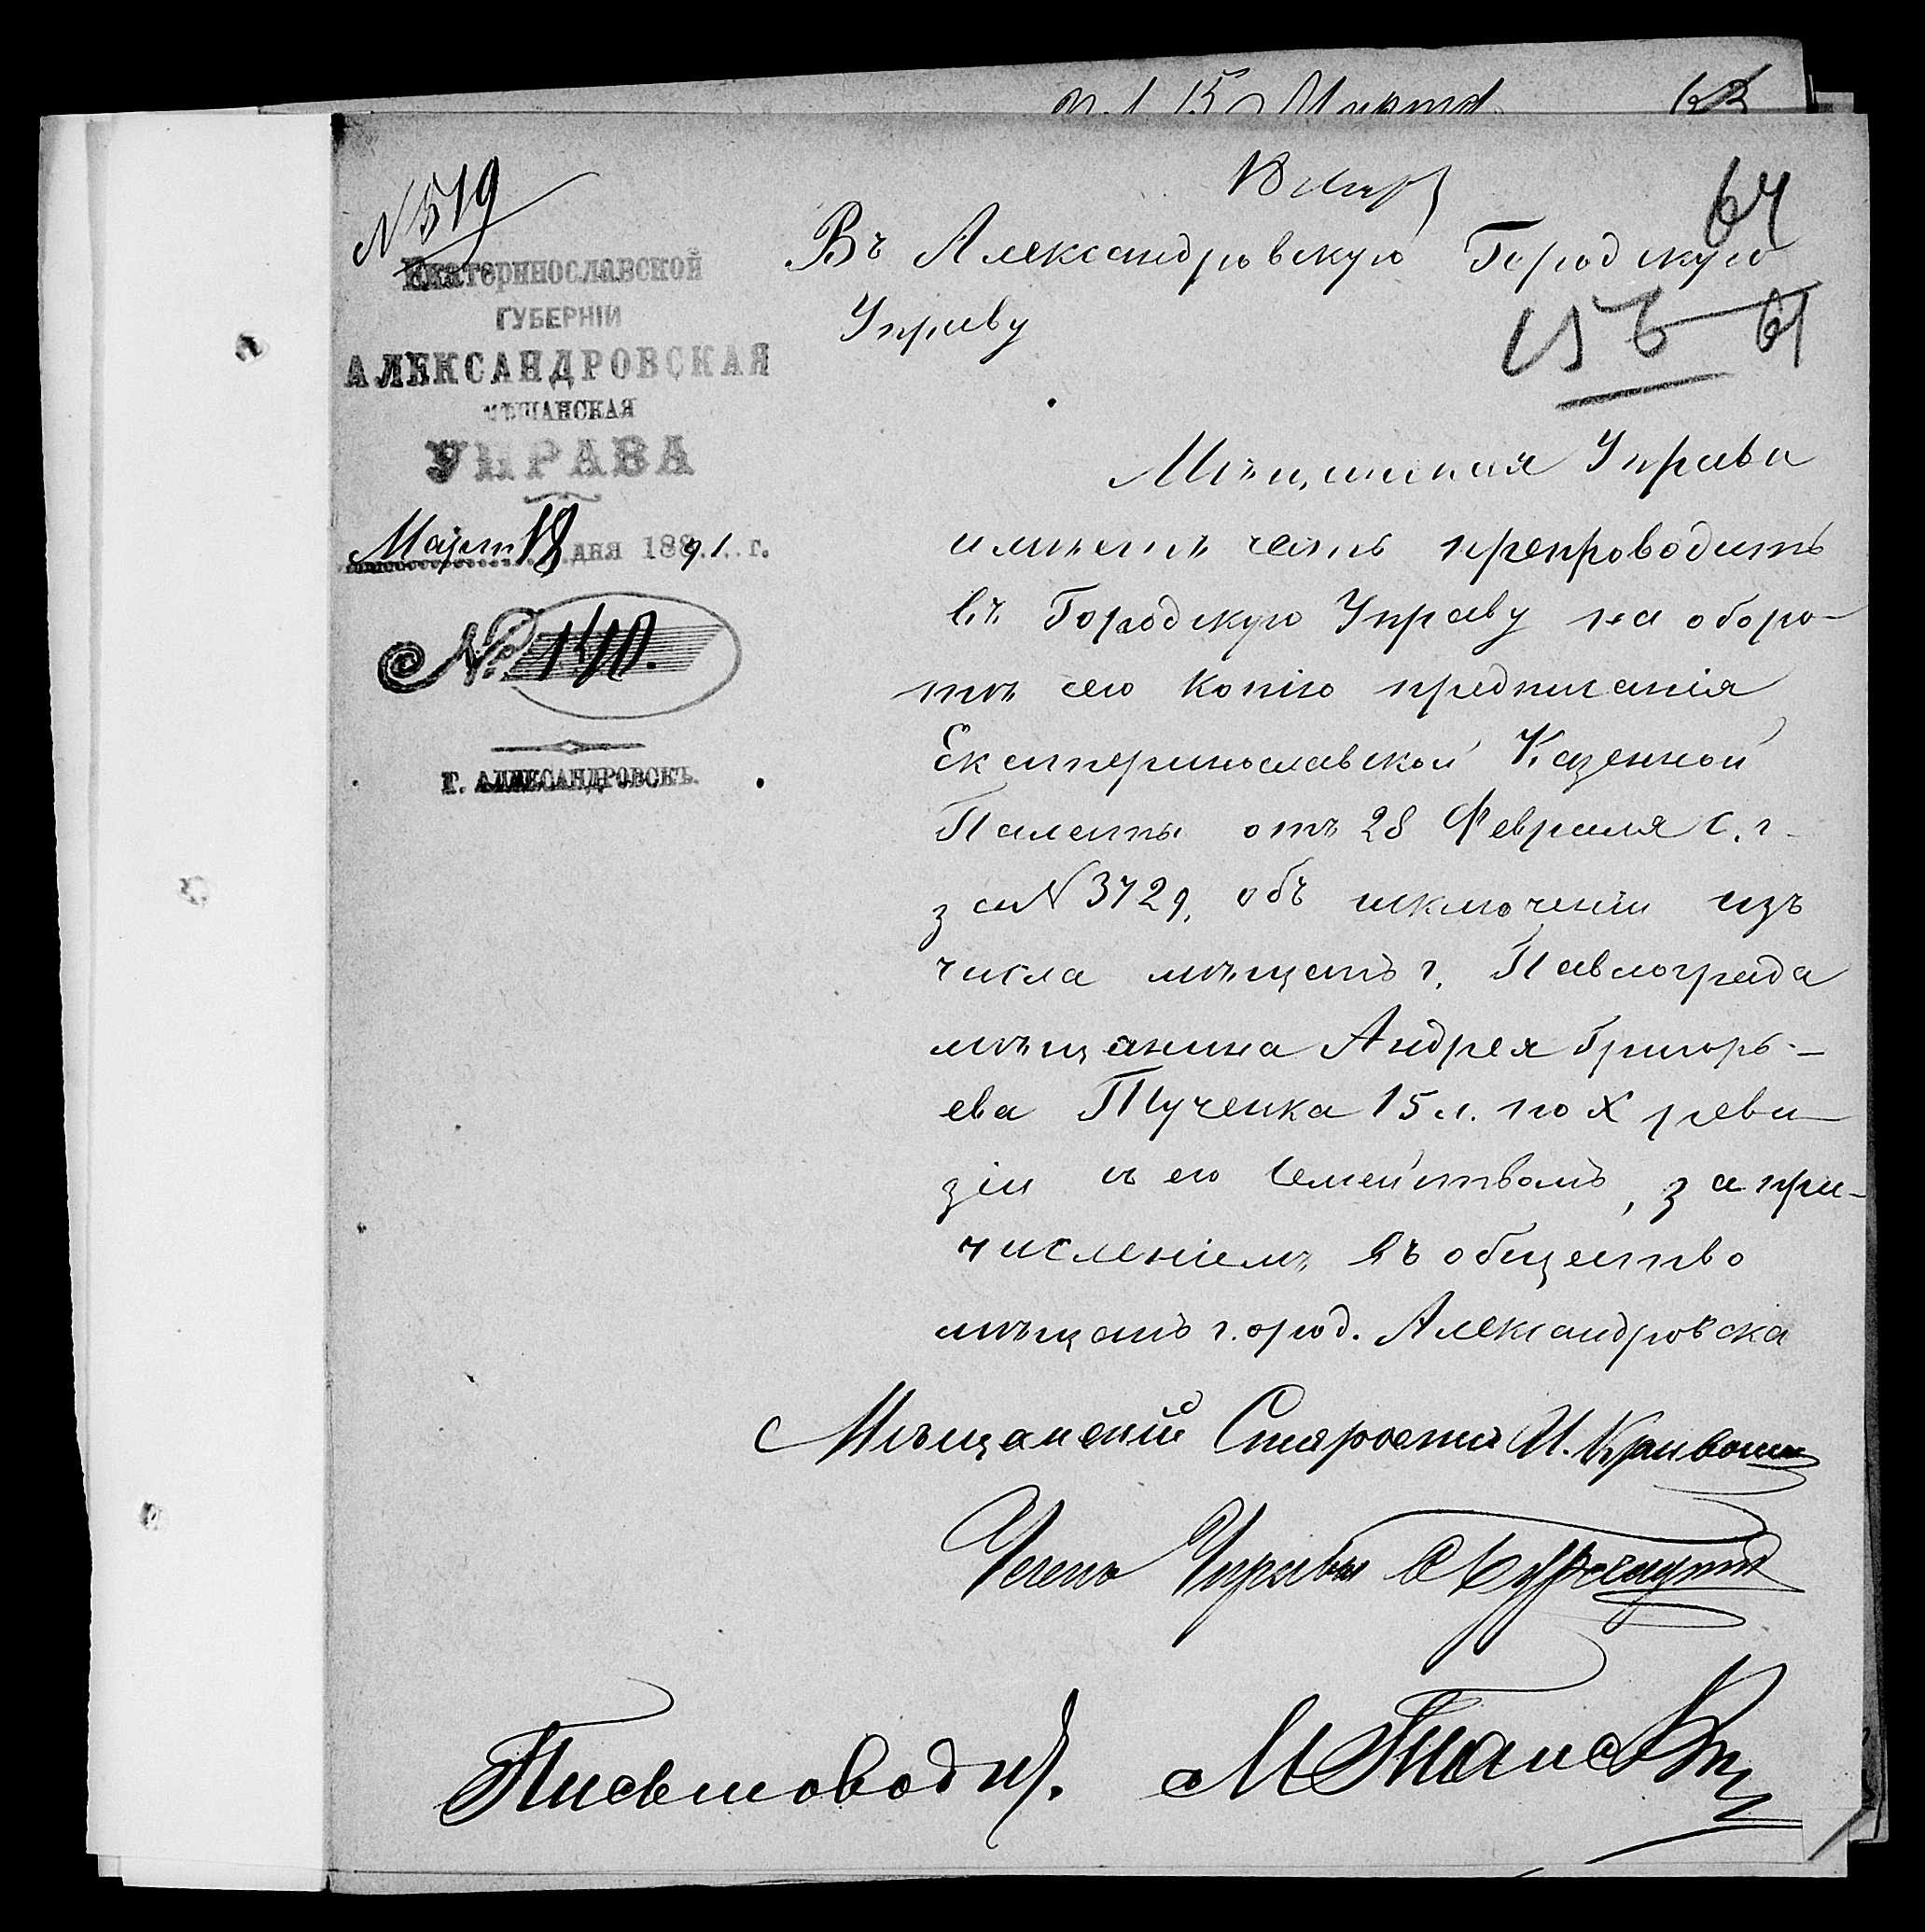 18 мар
64
№ 519
Екатеринославской
ГУБЕРНІИ
АЛЕКСАНДРОВСКАЯ
МѢЩАНСКАЯ
УПРАВА
Март 18 дня 1891 г.
№ 140.
Г. АЛЕКСАНДРОВСКЪ.
Въ Александровскую Городскую
Управу
156 61
Мѣщанская Управа
имѣетъ честь препроводить
въ Городскую Управу на оборо-
тѣ сего копію предписанія
Екатеринославской Казенной
Палаты отъ 28 Февраля с. г.
за № 3729, объ исключеніи изъ
числа мѣщанъ г. Павлограда
мѣщанина Андрея Григорь-
ева 15 л. по X реви-
зіи съ его семействомъ, за при-
численіемъ въ общество
мѣщанъ город. Александровска
Мѣщанскій Староста И.
Членъ Управы
Письмовод.